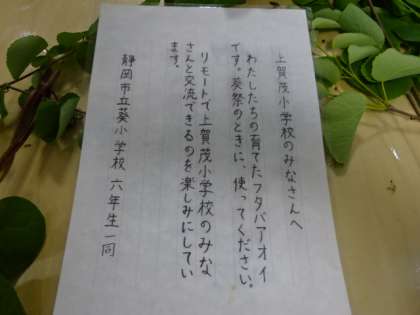 上賀茂小学校のみなさんへ
わたしたちの育てたフタバアオイ
です。葵祭のときに、使ってください。
リモートで上賀茂小学校のみな
さんと交流できるのを楽しみにしてい
ます。
静岡市立葵小学校 六年生一同